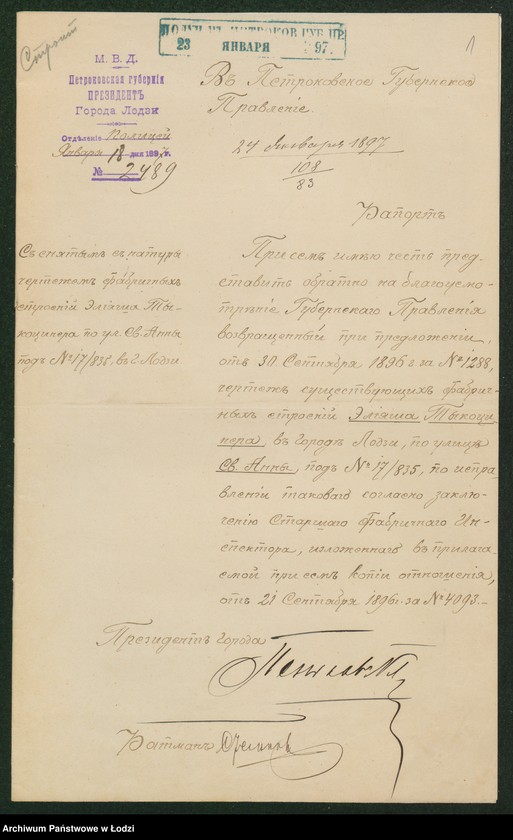 Строит
1
ПОЛУЧ. ПЕТРОКОВ. ГУБ. ПР.
23 ЯНВАРЯ 97.
М. В. Д.
Петроковская губернія
ПРЕЗИДЕНТЪ
Города Лодзи
Отдѣленіе Полицей
Января 18 дня 1897 г.
№ 2489
Въ Петроковское Губернское
Правленіе.
24 Января 1897
108
83
Рапортъ
Съ снятымъ съ натуры
чертежемъ фабричныхъ
строеній Эліяша Ты-
коцинера по ул. Св. Анны
подъ № 17/835, въ г. Лодзи
При семъ имѣю честь пред-
ставить обратно на благоусмо-
трѣніе Губернскаго Правленія
возвращенный при предложеніи,
отъ 30 Сентября 1896 г. за № 1288,
чертежъ существующихъ фабрич-
ныхъ строеній Эліяша Тыкоци-
нера въ городѣ Лодзи, по улицѣ
Св. Анны, подъ № 17/835, по испра-
вленіи таковаго согласно заклю-
ченію Старшаго Фабричнаго Ин-
спектора, изложеннаго въ прилага-
емой при семъ копіи отношенія,
отъ 21 Сентября 1896 г. за № 4093.
Президентъ города
Ратманъ
Archiwum Państwowe w Łodzi